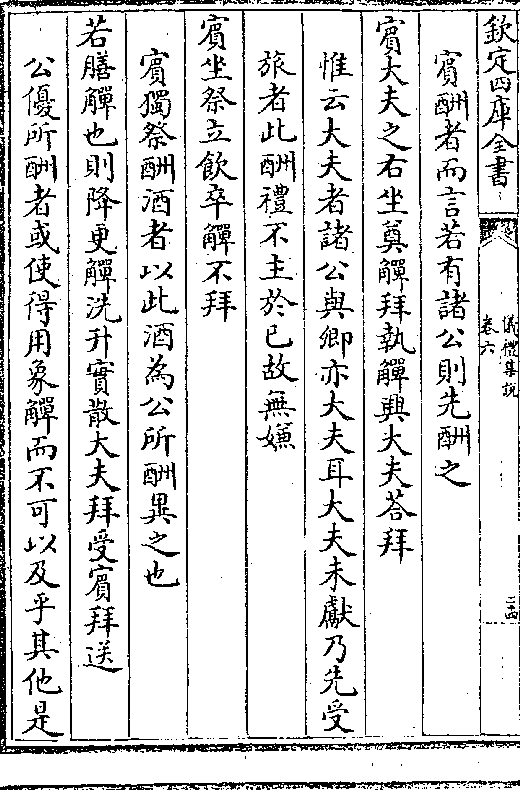 欽定四庫全書
儀禮集說
卷六
二四
賓酬者而言若有諸公則先酬之
賓大夫之右坐奠觶拜執觶興大夫荅拜
惟云大夫者諸公與卿亦大夫耳大夫未獻乃先受
旅者此酬禮不主於已故無嫌
賓坐祭立飲卒觶不拜
賓獨祭酬酒者以此酒為公所酬異之也
若膳觶也則降更觶洗升實散大夫拜受賓拜送
公優所酬者或使得用象觶而不可以及乎其他是